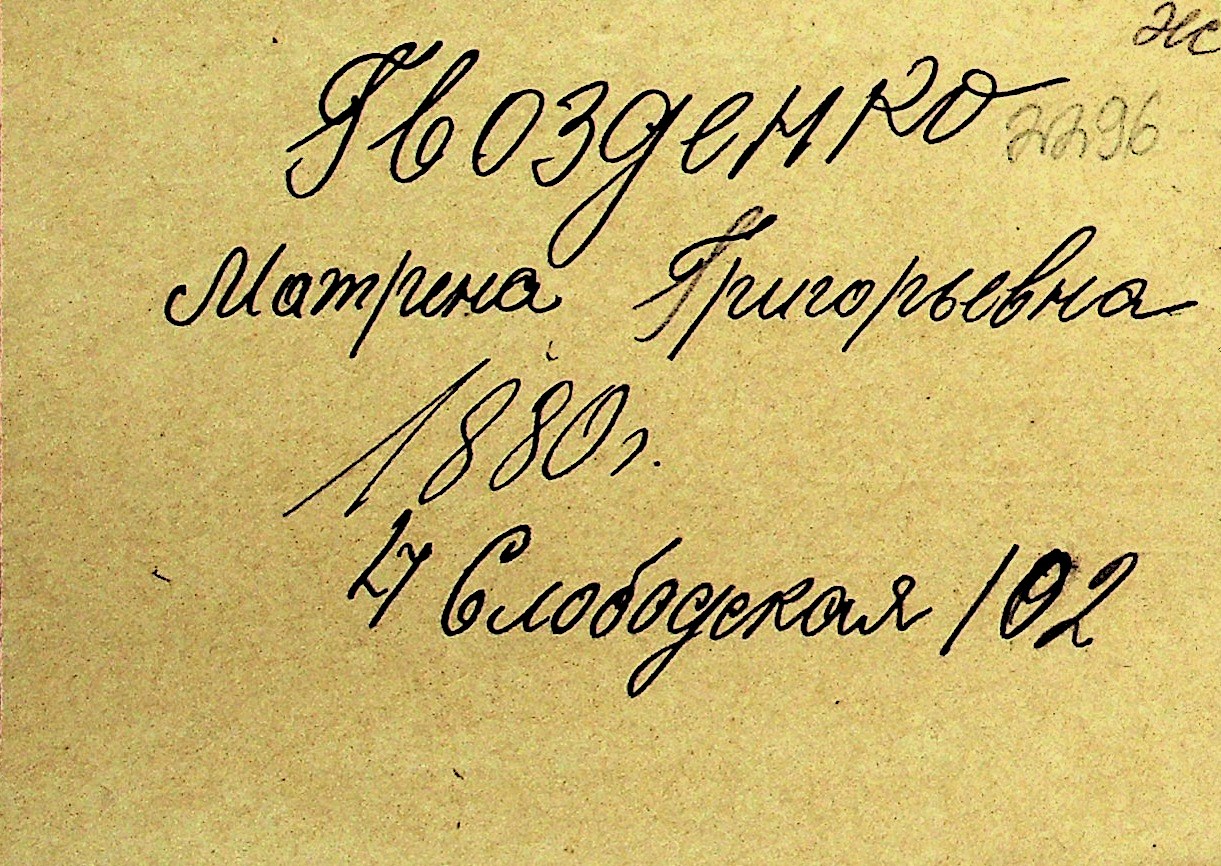 Гвозденко
2296
Матрена Григорьевна
1880 г.
Слободская 102